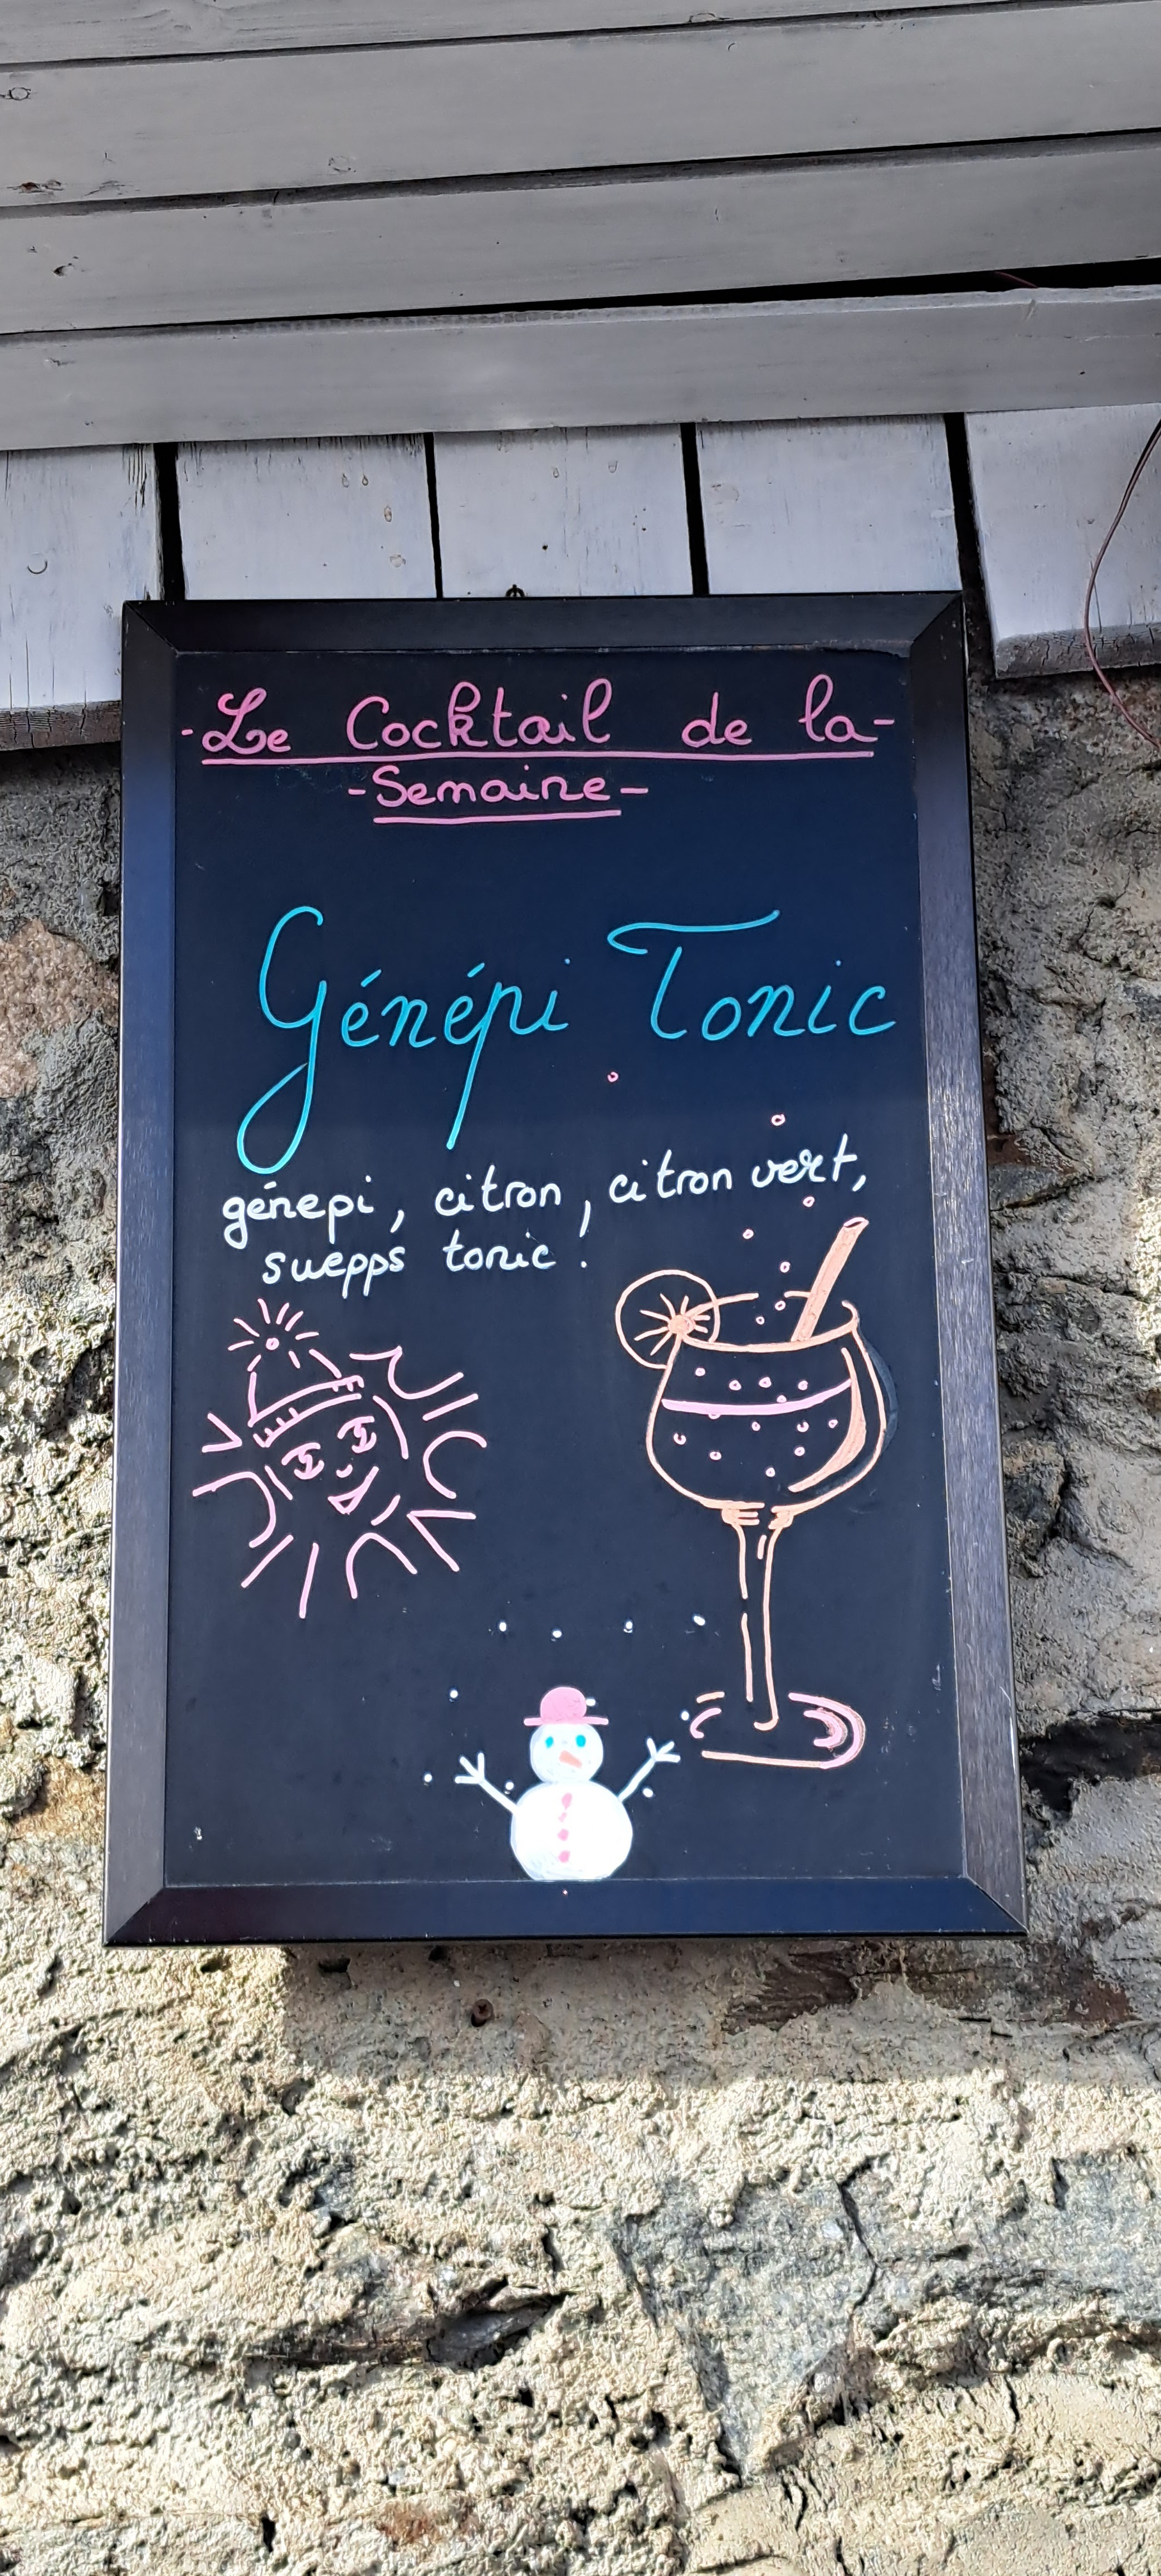 -Le Cocktail de la-
-Semaine-
Génépi Tonic
génepi, citron, citron vert,
suepps tonic.